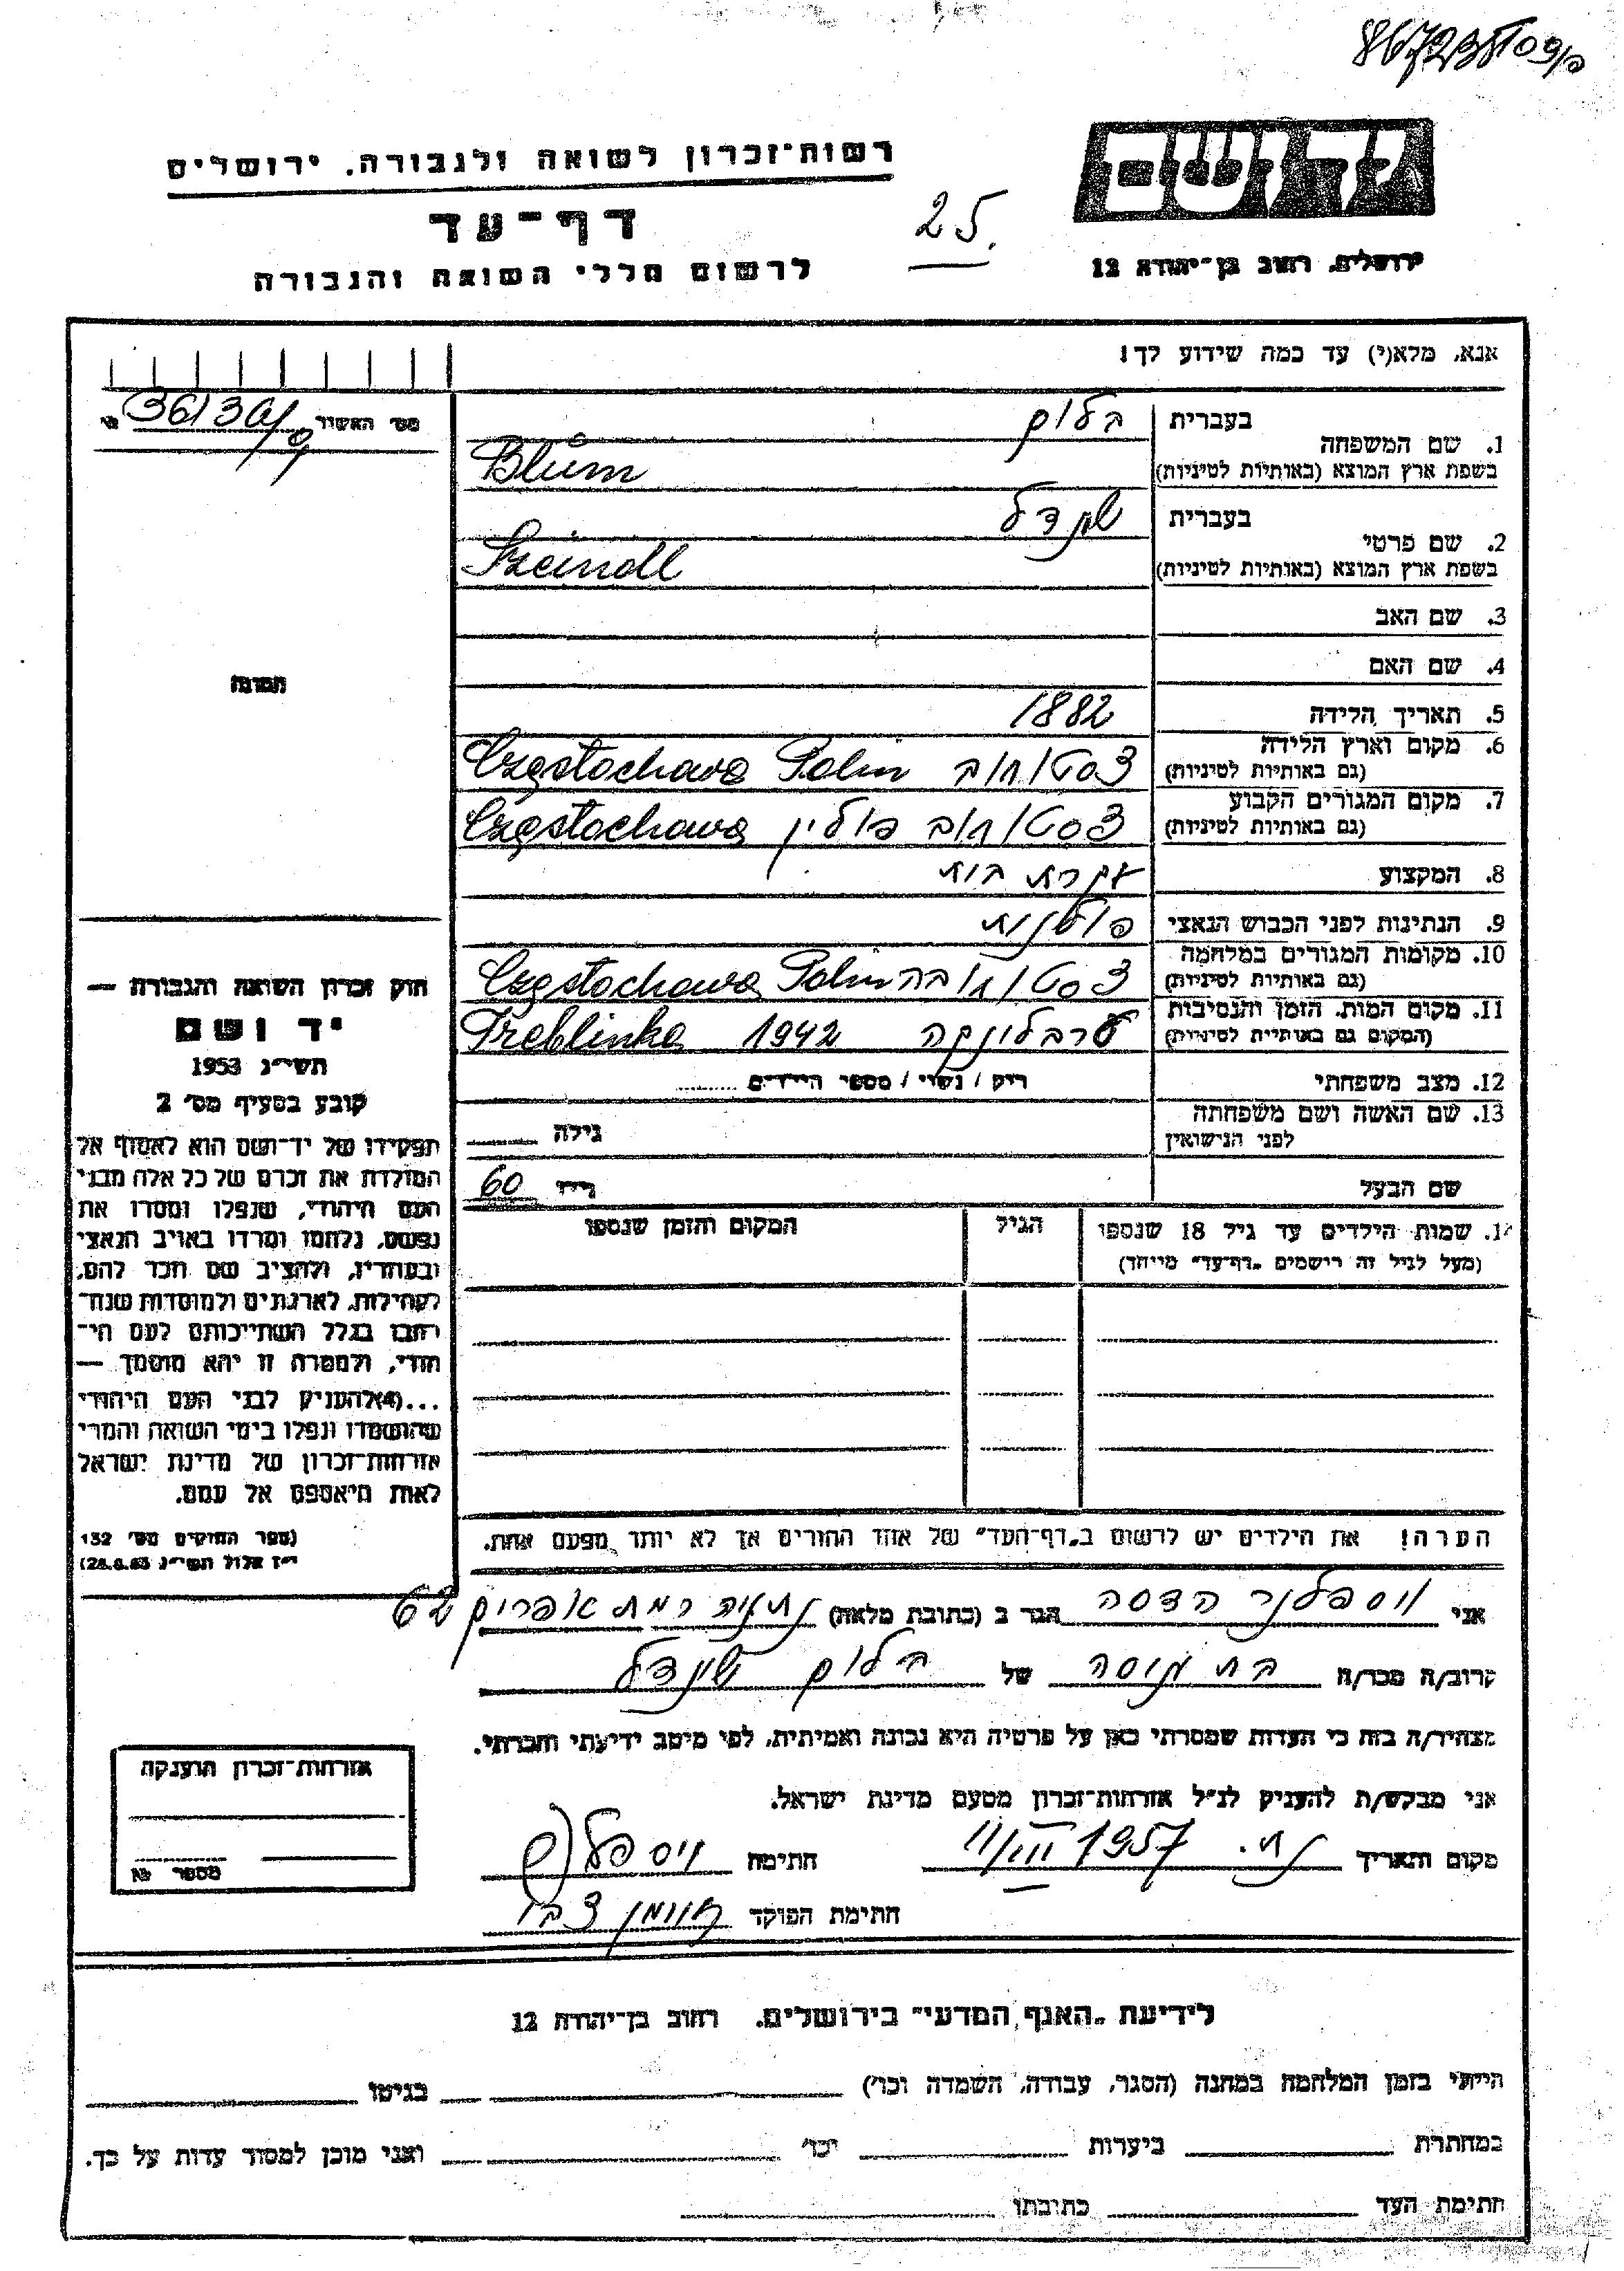 יד ושם
ירושלים, רחוב בן־יהודה 12
רשות־זכרון לשואה ולגבורה, ירושלים
דף־עד
לרשום חללי השואה והגבורה
25.
אנא, מלא(י) עד כמה שידוע לך!
מס' האשור
1. שם המשפחה בעברית בלום
בשפת ארץ המוצא (באותיות לטיניות) Blum
2. שם פרטי בעברית שיינדל
בשפת ארץ המוצא (באותיות לטיניות) Szeindl
3. שם האב
4. שם האם
תמונה
5. תאריך הלידה 1882
6. מקום וארץ הלידה (גם באותיות לטיניות) צ'סטוחוב Polin Częstochowa
7. מקום המגורים הקבוע (גם באותיות לטיניות) צ'סטוחוב פולין Częstochowa
8. המקצוע עקרת בית
9. הנתינות לפני הכבוש הנאצי פולנית
10. מקומות המגורים במלחמה (גם באותיות לטיניות) צ'סטוחובה Polin Częstochowa
11. מקום המות, הזמן והנסיבות (המקום גם באותיות לטיניות) טרבלינקה 1942 Treblinka
12. מצב משפחתי רווק / נשוי / מספר הילדים
13. שם האשה ושם משפחתה לפני הנישואין גילה
שם הבעל גילו 60
14. שמות הילדים עד גיל 18 שנספו הגיל המקום והזמן שנספו
(מעל לגיל זה רישמים "דף־עד" מיוחד)
הערה! את הילדים יש לרשום ב"דף־העד" של אחד ההורים אך לא יותר מפעם אחת.
חוק זכרון השואה והגבורה —
יד ושם
תשי"ג 1953
קובע בסעיף מס' 2
תפקידו של יד־ושם הוא לאסוף אל
המולדת את זכרם של כל אלה מבני
העם היהודי, שנפלו ומסרו את
נפשם, נלחמו ומרדו באויב הנאצי
ובעוזריו, ולהציב שם וזכר להם,
לקהילות, לארגונים ולמוסדות שנח־
רבו בגלל השתייכותם לעם היי־
הודי, ולמטרה זו יהא מוסמך —
...(4)להעניק לבני העם היהודי
שהושמדו ונפלו בימי השואה והמרי
אזרחות־זכרון של מדינת ישראל
לאות היאספם אל עמם.
(ספר החוקים מס' 132
י"ז אלול תשי"ג 28.8.53)
אני ויספלנר הדסה הגר ב (כתובת מלאה) נתניה רמת אפרים 62
קרוב/ה מכר/ה של בלום שיינדל
מצהיר/ה בזה כי העדות שמסרתי כאן על פרטיה היא נכונה ואמיתית, לפי מיטב ידיעתי והכרתי.
אני מבקש/ת להעניק לנ"ל אזרחות־זכרון מטעם מדינת ישראל.
מקום ותאריך נת. 11/VII 1957 חתימה
חתימת הפוקד
אזרחות־זכרון הוענקה
מספר №
לידיעת "האגף המדעי" בירושלים, רחוב בן־יהודה 12
הייתי בזמן המלחמה במחנה (הסגר, עבודה, השמדה וכו') בגיטו
במחתרת ביערות וכו' ואני מוכן למסור עדות על כך.
חתימת העד כתובתו